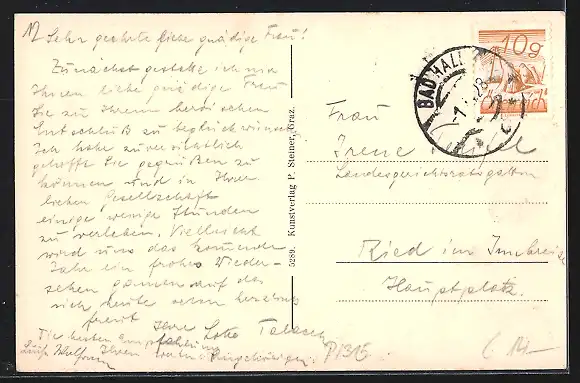 Sehr geehrte liebe gnädige Frau!
Zunächst gestatte ich mir
Ihnen liebe gnädige Frau
Sie zu Ihrem
Entschluß zu beglückwünschen
Ich habe zuversichtlich
gehofft Sie begrüßen zu
können und in Ihrer
lieben Gesellschaft
einige wenige Stunden
zu verleben. Vielleicht
wird uns das kommende
Jahr ein frohes Wieder-
sehen geben auf das
sich heute schon herzlich
freut Ihre Lotte
Die besten Empfehlungen
Ihnen
5289. Kunstverlag P. Steiner, Graz.
10g
BAD HALL
Frau
Irene
Landesgerichtsratsgattin
Ried im Innkreise
Hauptplatz.
P1315